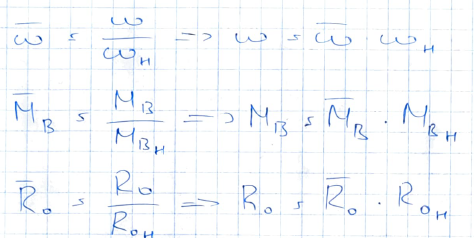 ω̄ = ω / ω_H => ω = ω̄ · ω_H
M̄_B = M_B / M_BH => M_B = M̄_B · M_BH
R̄_0 = R_0 / R_0H => R_0 = R̄_0 · R_0H